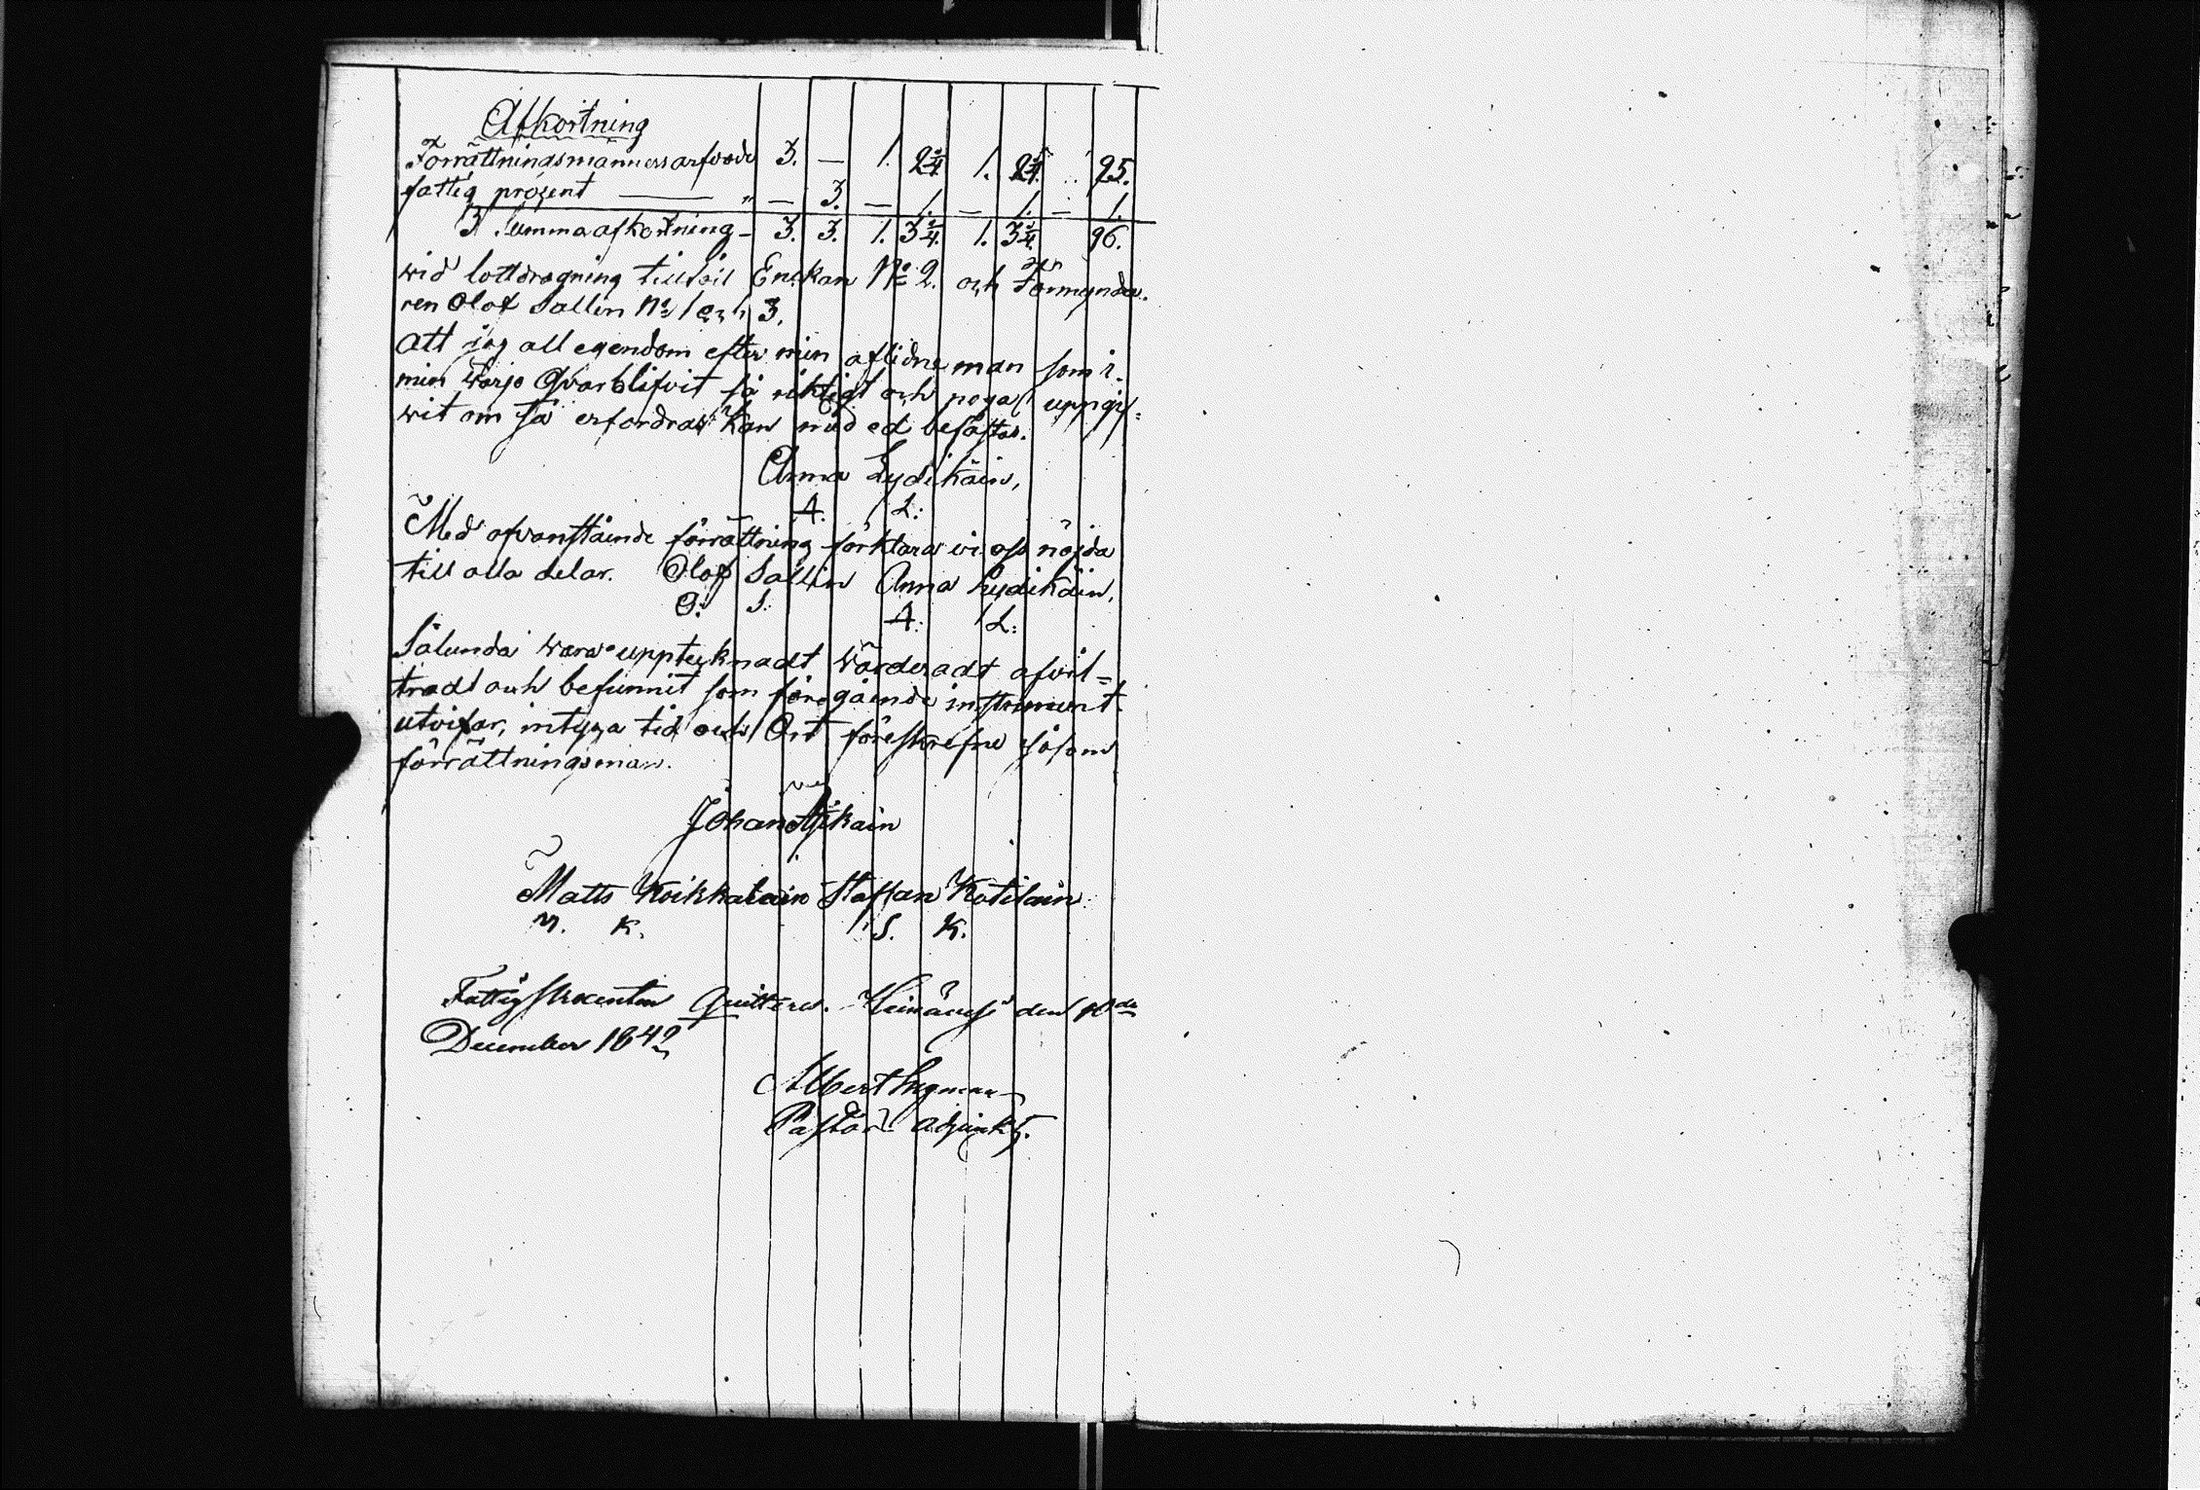 Afkortning
Förrättningsmännens arfvode 3. — 1. 2 3/4. 1. 2 3/4. " 95.
fattig prozent — " — 3. — 1. — 1. — 1.
Summa afkortning — 3. 3. 1. 3 3/4. 1. 3 3/4. 96.
wid lottdragning tillföll Enckan No 2. och Förmynda-
ren Olof Sallin No 1 och 3.
Att jag all egendom efter min aflidne man som i
min wärjo qvarblifvit så riktigt och noga uppgif=
wit om så erfordras kan med ed befästas.
Anna Lydikäin,
A. L:
Med ofvanstående förrättning förklara vi oss nöjda
till alla delar. Olof Sallin Anna Lydikäin,
O: S: A: L:
Sålunda wara upptecknadt wärderadt afvit=
tradt och befunnit som föregående instrument
utvisar, intyga tid och Ort föreskrefne såsom
förrättningsmän.
Johan
Matts Koikkalain Staffan Kotilain
M. K. S. K.
Fattig Procenten Quitteras. Heinävesi den 10de
December 1842
Albert Ingman
Pastors adjunkt.